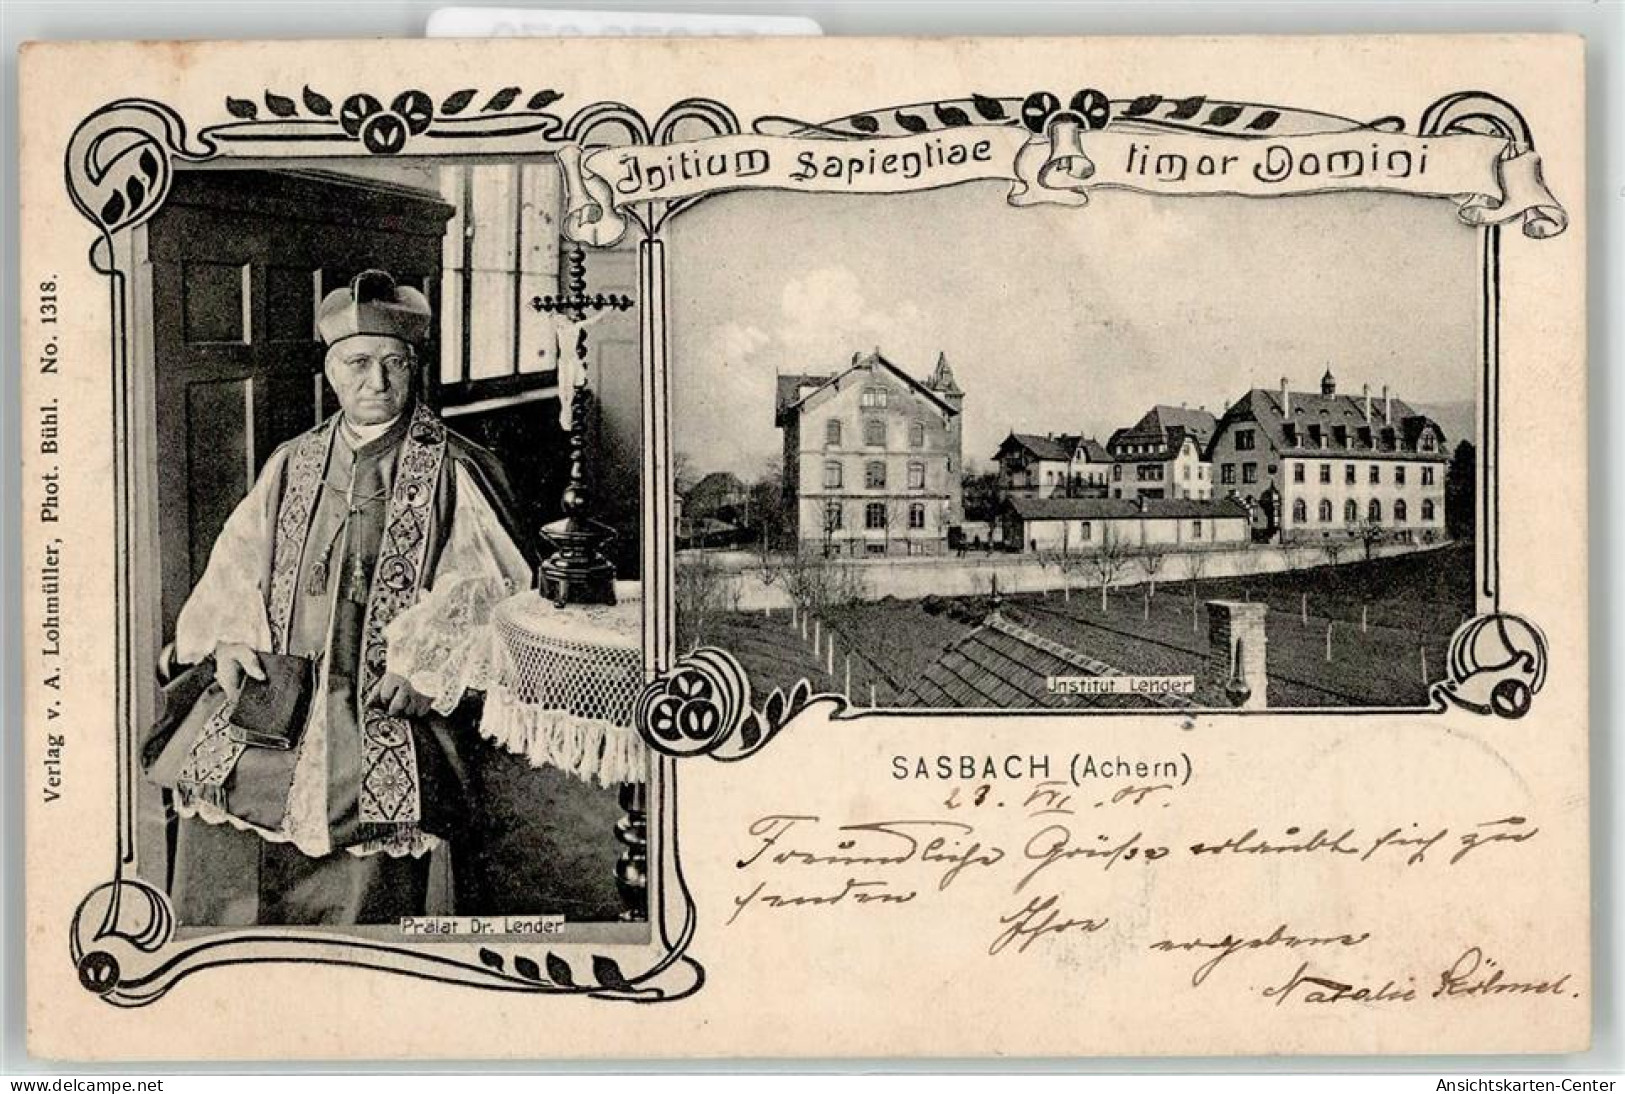 Initium Sapientiae timor Domini
Verlag v. A. Lohmüller, Phot. Bühl. No. 1318.
Institut Lender
Prälat Dr. Lender
SASBACH (Achern)
23. VII. 05.
Freundliche Grüße erlaubt sich zu
senden
Ihre
ergebene
Natalie
delcampe.net
Ansichtskarten-Center